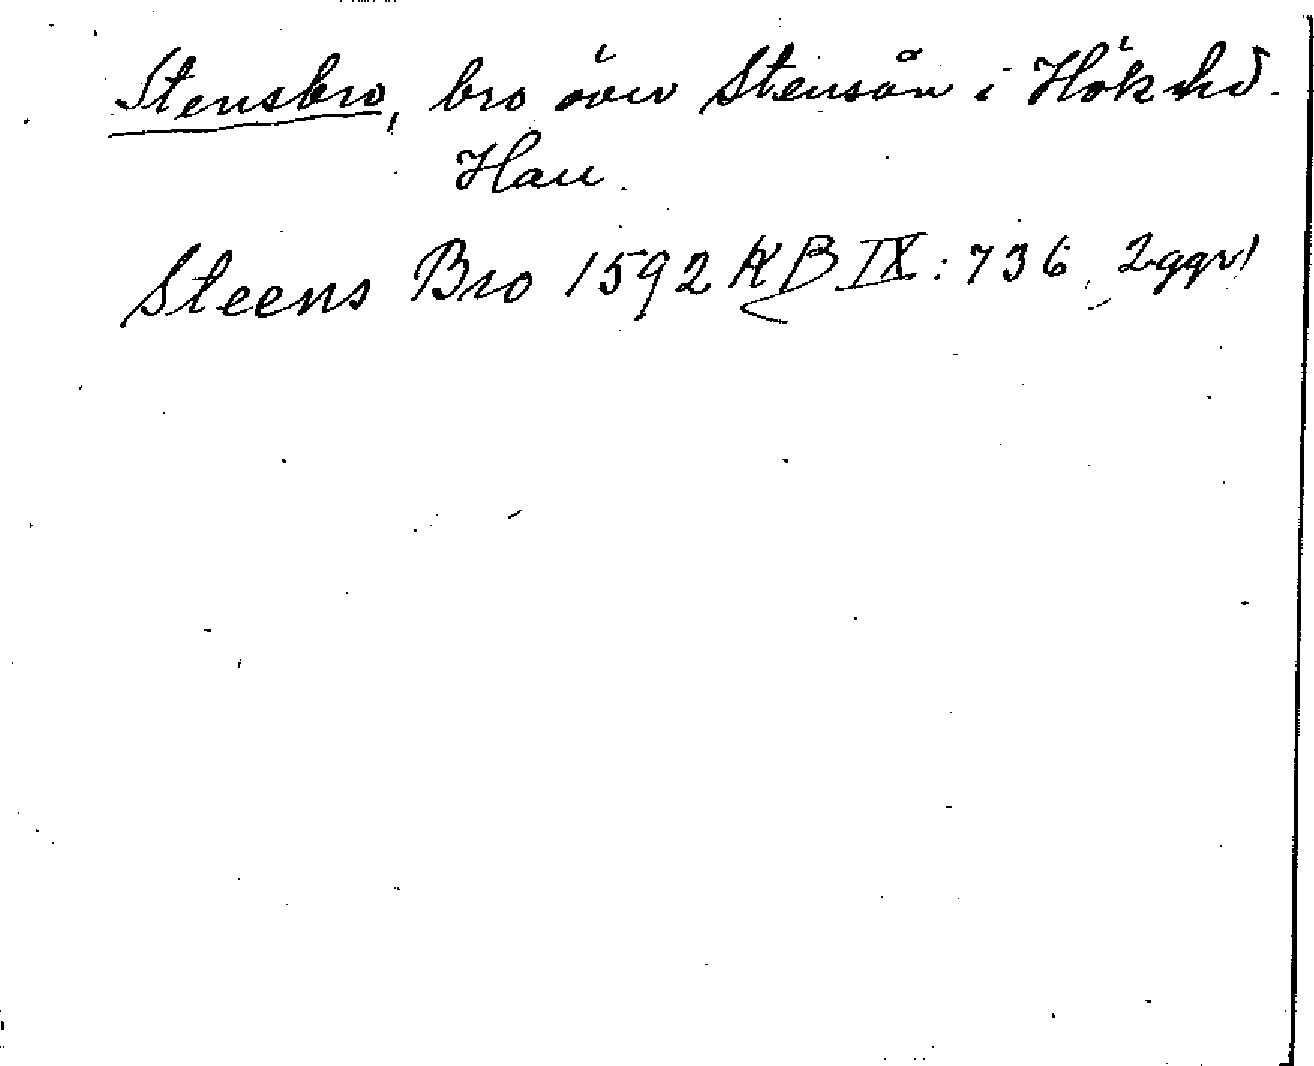 Stensbro, bro över Stensån i Hök hd.
Hall.
Steens Bro 1592 KB IX: 736, 2 ggr!